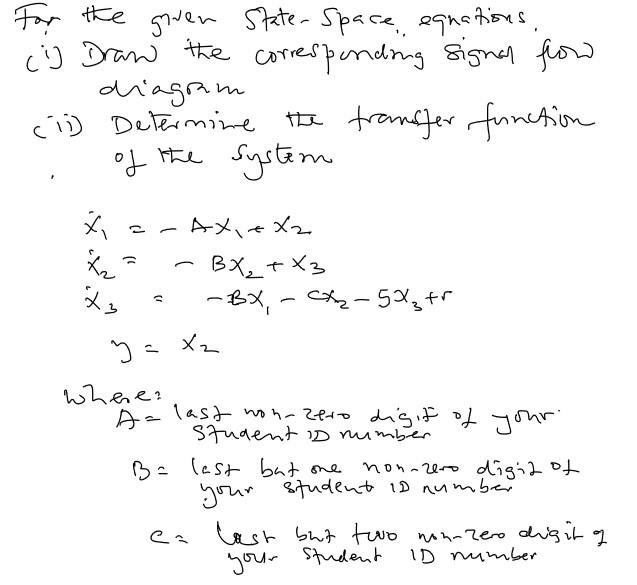 For the given State-Space equations.
(i) Draw the corresponding signal flow
diagram
(ii) Determine the transfer function
of the system
ẋ₁ = - Ax₁ + x₂
ẋ₂ = - Bx₂ + x₃
ẋ₃ = -Bx₁ - cx₂ - 5x₃ + r
y = x₂
where:
A = last non-zero digit of your
Student ID number
B = last but one non-zero digit of
your student ID number
C = last but two non-zero digit of
your student ID number